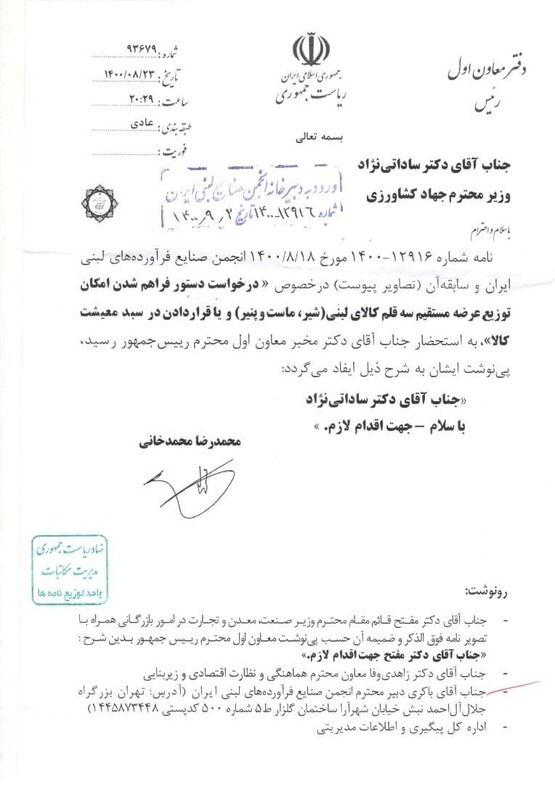 دفتر معاون اول
رئیس
جمهوری اسلامی ایران
ریاست جمهوری
شماره: ۹۳۶۷۹
تاریخ: ۱۴۰۰/۰۸/۲۳
ساعت: ۲۰:۲۹
طبقه بندی: عادی
فوریت:
بسمه تعالی
جناب آقای دکتر ساداتی‌نژاد
وزیر محترم جهاد کشاورزی
ورود به دبیرخانه انجمن صنایع لبنی ایران
شماره ۱۴۰۰-۱۲۹۱۶ تاریخ ۱۴۰۰,۹,۲
با سلام و احترام
نامه شماره ۱۲۹۱۶-۱۴۰۰ مورخ ۱۴۰۰/۸/۱۸ انجمن صنایع فرآورده‌های لبنی
ایران و سابقه‌آن (تصاویر پیوست) درخصوص « درخواست دستور فراهم شدن امکان
توزیع عرضه مستقیم سه قلم کالای لبنی(شیر، ماست و پنیر) و یا قراردادن در سبد معیشت
کالا»، به استحضار جناب آقای دکتر مخبر معاون اول محترم رییس‌جمهور رسید،
پی‌نوشت ایشان به شرح ذیل ایفاد می‌گردد:
«جناب آقای دکتر ساداتی‌نژاد
با سلام – جهت اقدام لازم. »
محمدرضا محمدخانی
نهاد ریاست جمهوری
مدیریت مکاتبات
واحد توزیع نامه ها
رونوشت:
- جناب آقای دکتر مفتح قائم مقام محترم وزیر صنعت، معدن و تجارت در امور بازرگانی همراه با
تصویر نامه فوق الذکر و ضمیمه آن حسب پی‌نوشت معاون اول محترم رییس جمهور بدین شرح :
«جناب آقای دکتر مفتح جهت اقدام لازم.»
- جناب آقای دکتر زاهدی‌وفا معاون محترم هماهنگی و نظارت اقتصادی و زیربنایی
- جناب آقای باکری دبیر محترم انجمن صنایع فرآورده‌های لبنی ایران (آدرس: تهران بزرگراه
جلال‌آل‌احمد نبش خیابان شهرآرا ساختمان گلزار ط۵ شماره ۵۰۰ کدپستی ۱۴۴۵۸۷۳۴۴۸)
- اداره کل پیگیری و اطلاعات مدیریتی